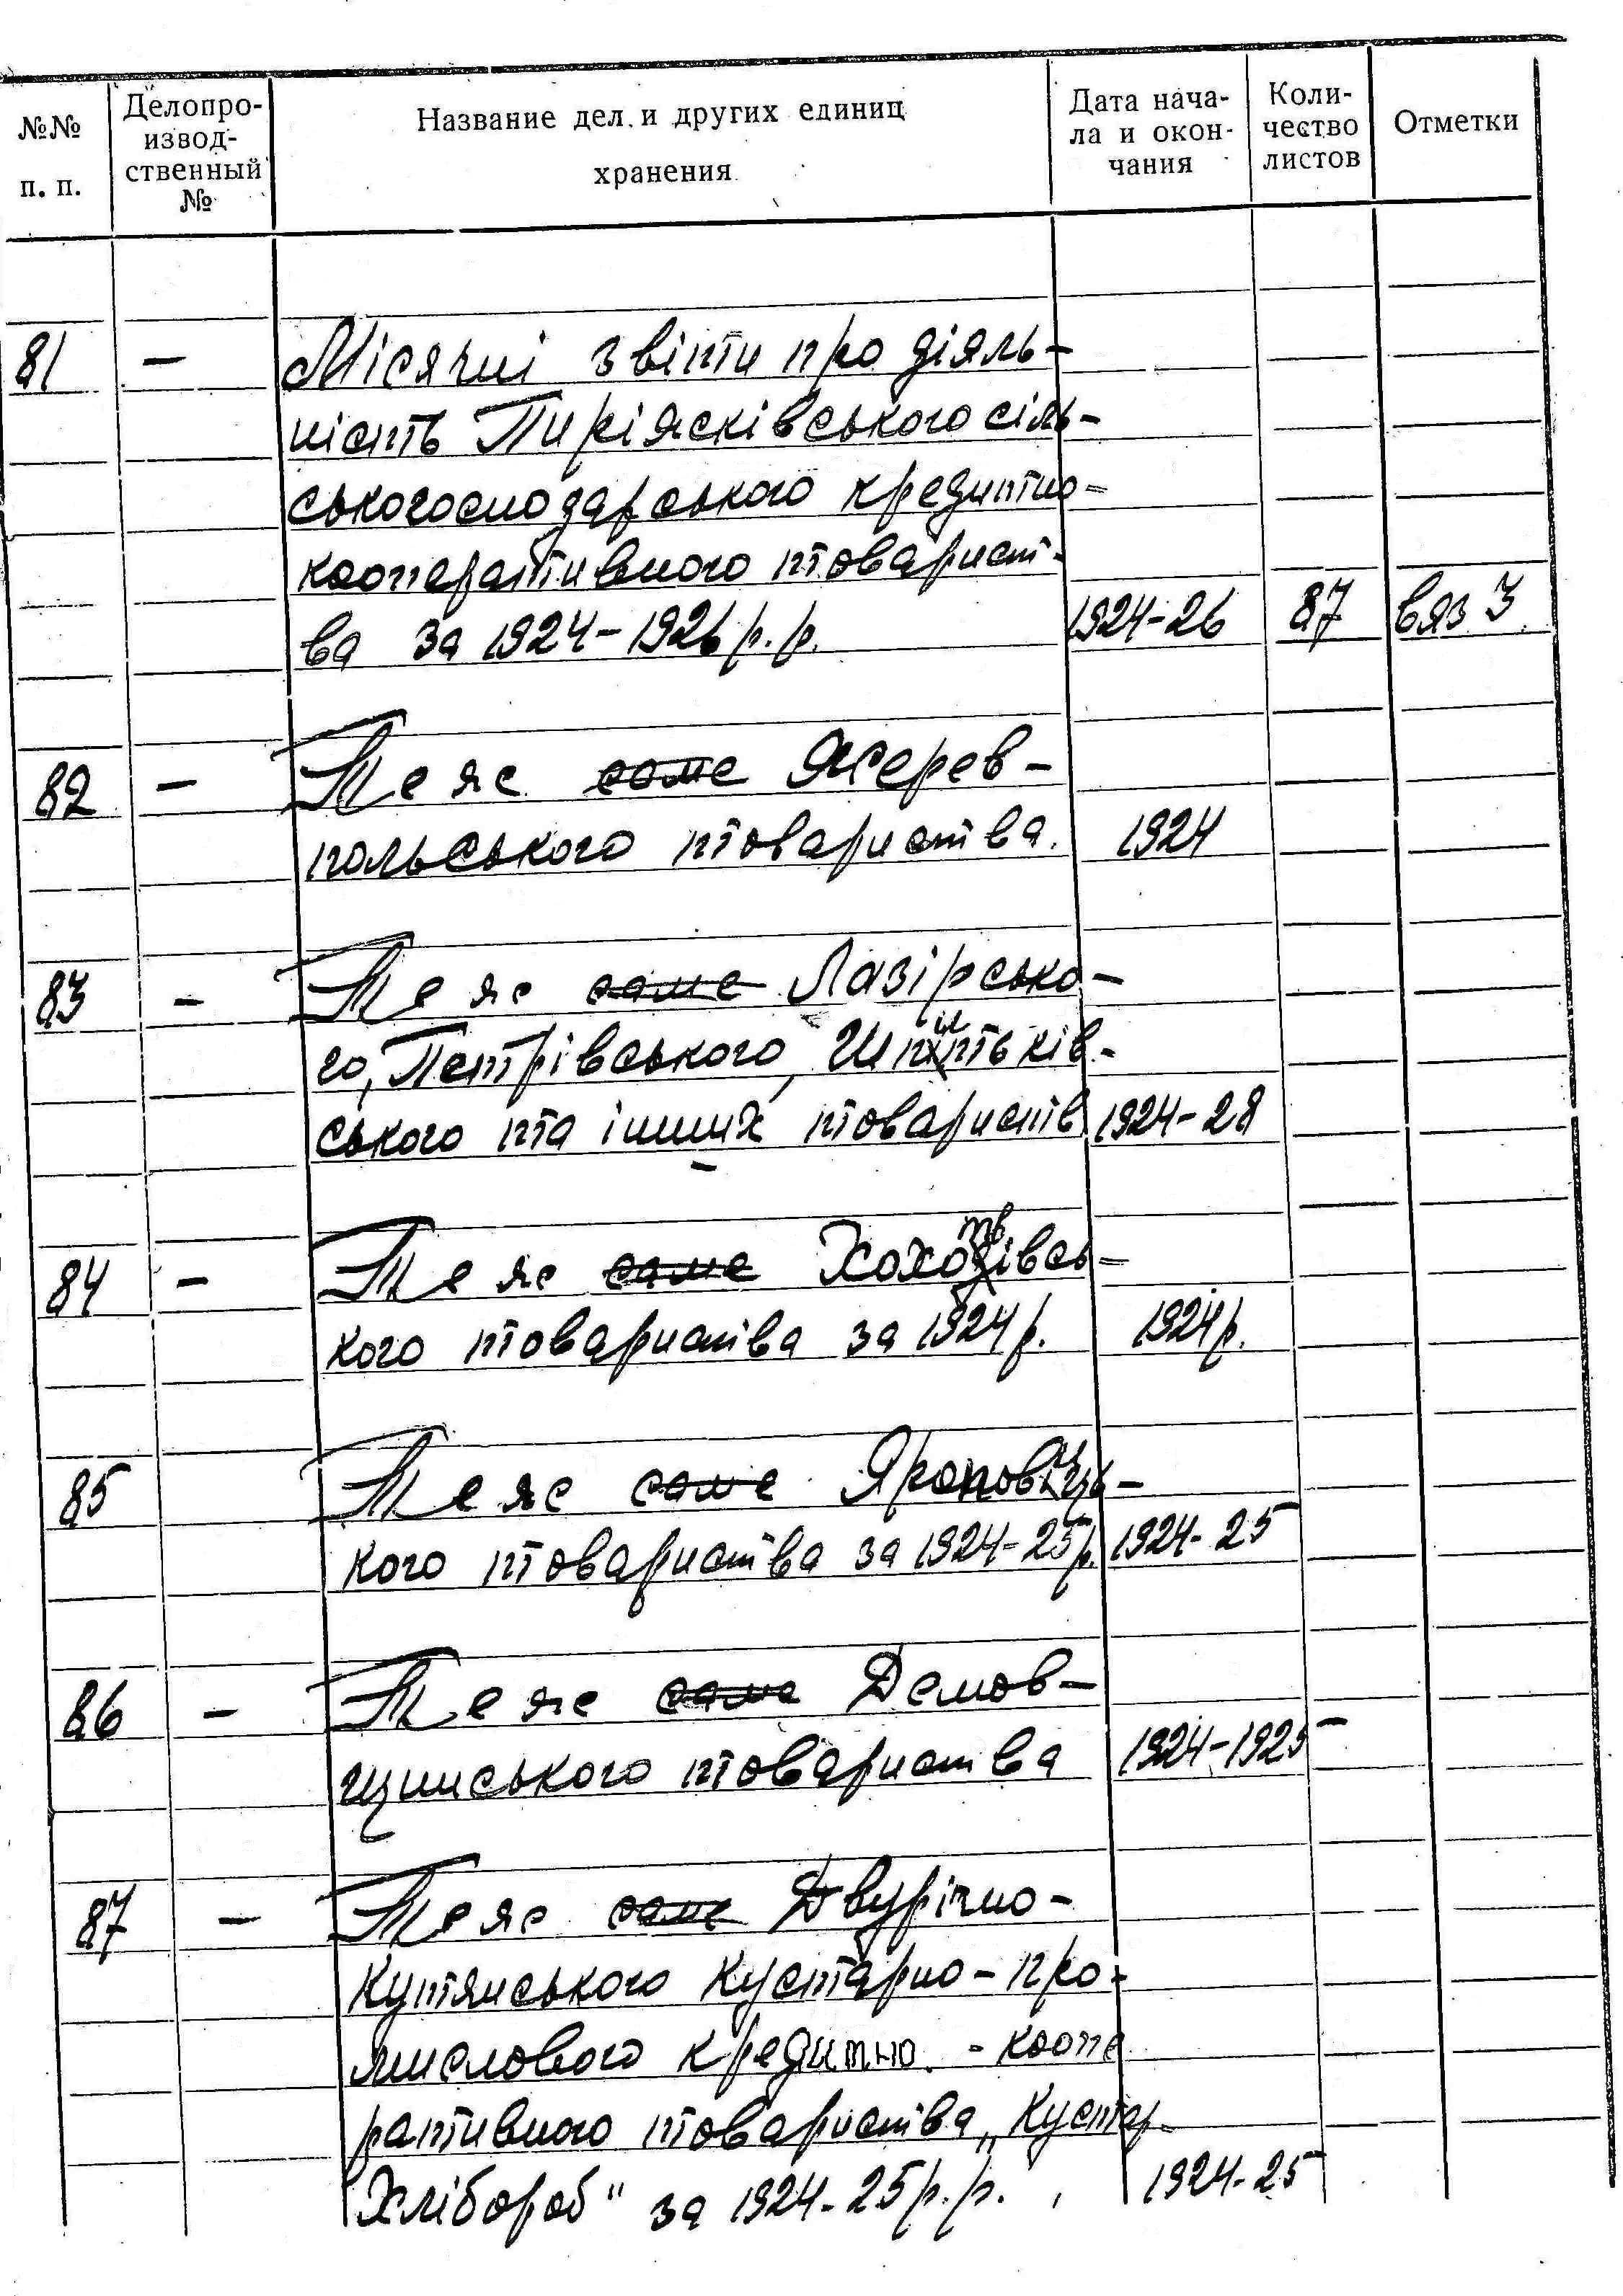 №№ п. п.
Делопро-
извод-
ственный
№
Название дел и других единиц
хранения
Дата нача-
ла и окон-
чания
Коли-
чество
листов
Отметки
81 — Місячні звіти про діяль-
ність Пиріясківського сіль-
ськогосподарського кредитно-
кооперативного товарист-
ва за 1924-1926 р.р. 1924-26 87 вяз 3
82 — Те же саме Жерев-
польського товариства. 1924
83 — Те же саме Лазірсько-
го, Петрівського,
ського та інших товариств 1924-28
84 — Те же саме Хохотвівсь-
кого товариства за 1924 р. 1924р.
85 Те же саме
кого товариства за 1924-25р. 1924-25
86 — Те же саме Демов-
щинського товариства 1924-1925
87 — Те же саме Двурічно-
Кутянського кустарно-про-
мислового кредитно-коопе
ративного товариства „Кустар-
Хлібороб" за 1924-25р.р. 1924-25